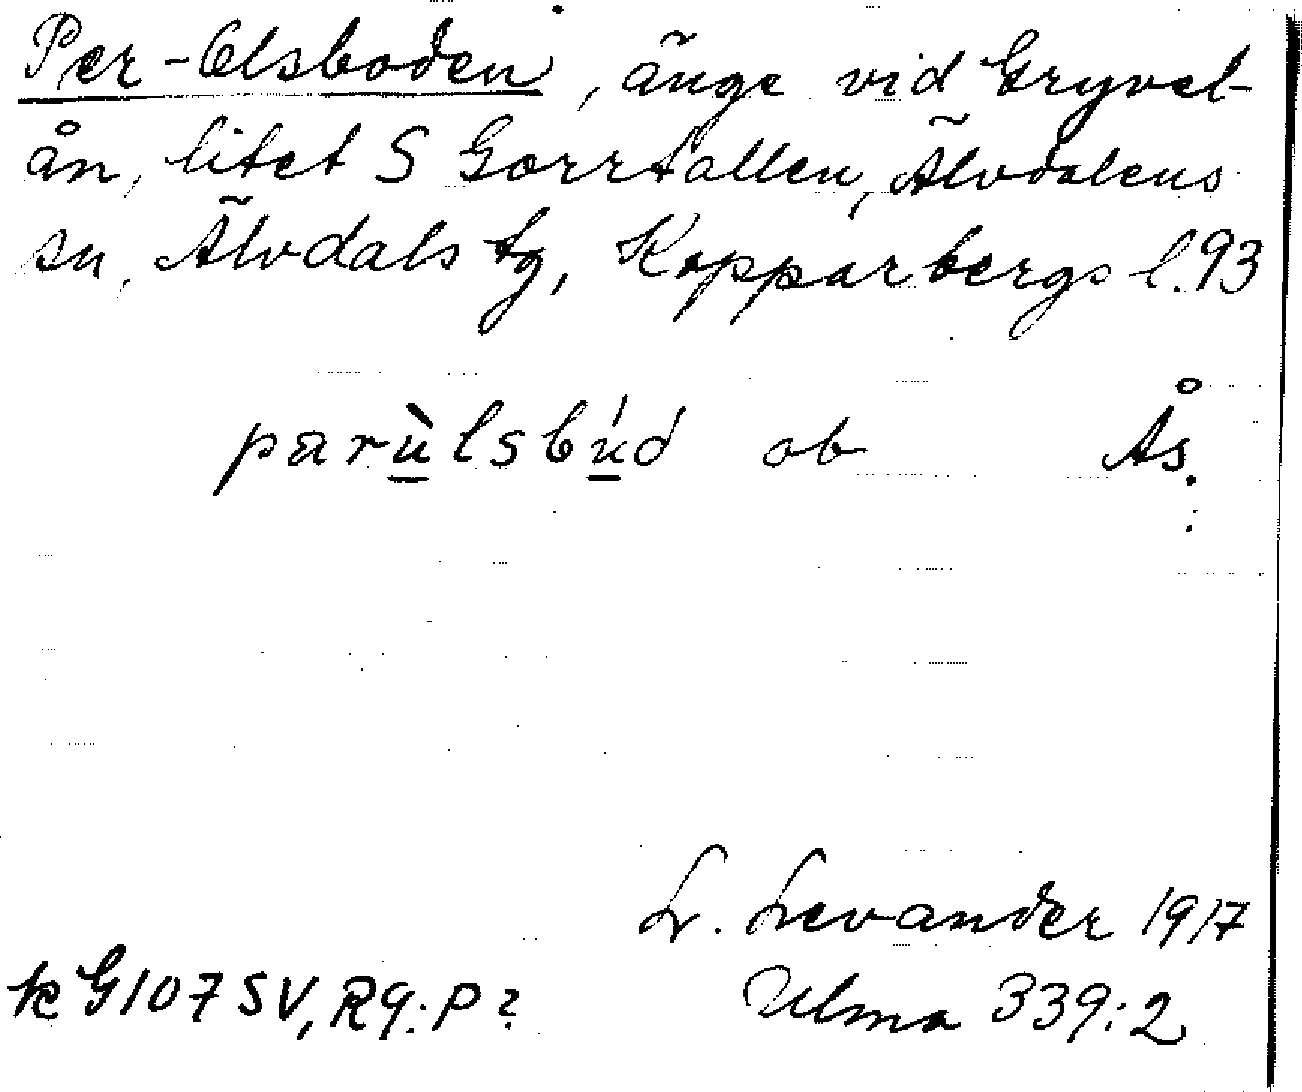 Per-Olsboden, änge vid Gryvel-
ån, litet S Gorrtallen, Älvdalens
sn, Älvdals tg, Kopparbergs l. 93
pärùlsbúd ob Ås.
L. Levander 1917
k G107SV, R9:P? Ulma 339:2